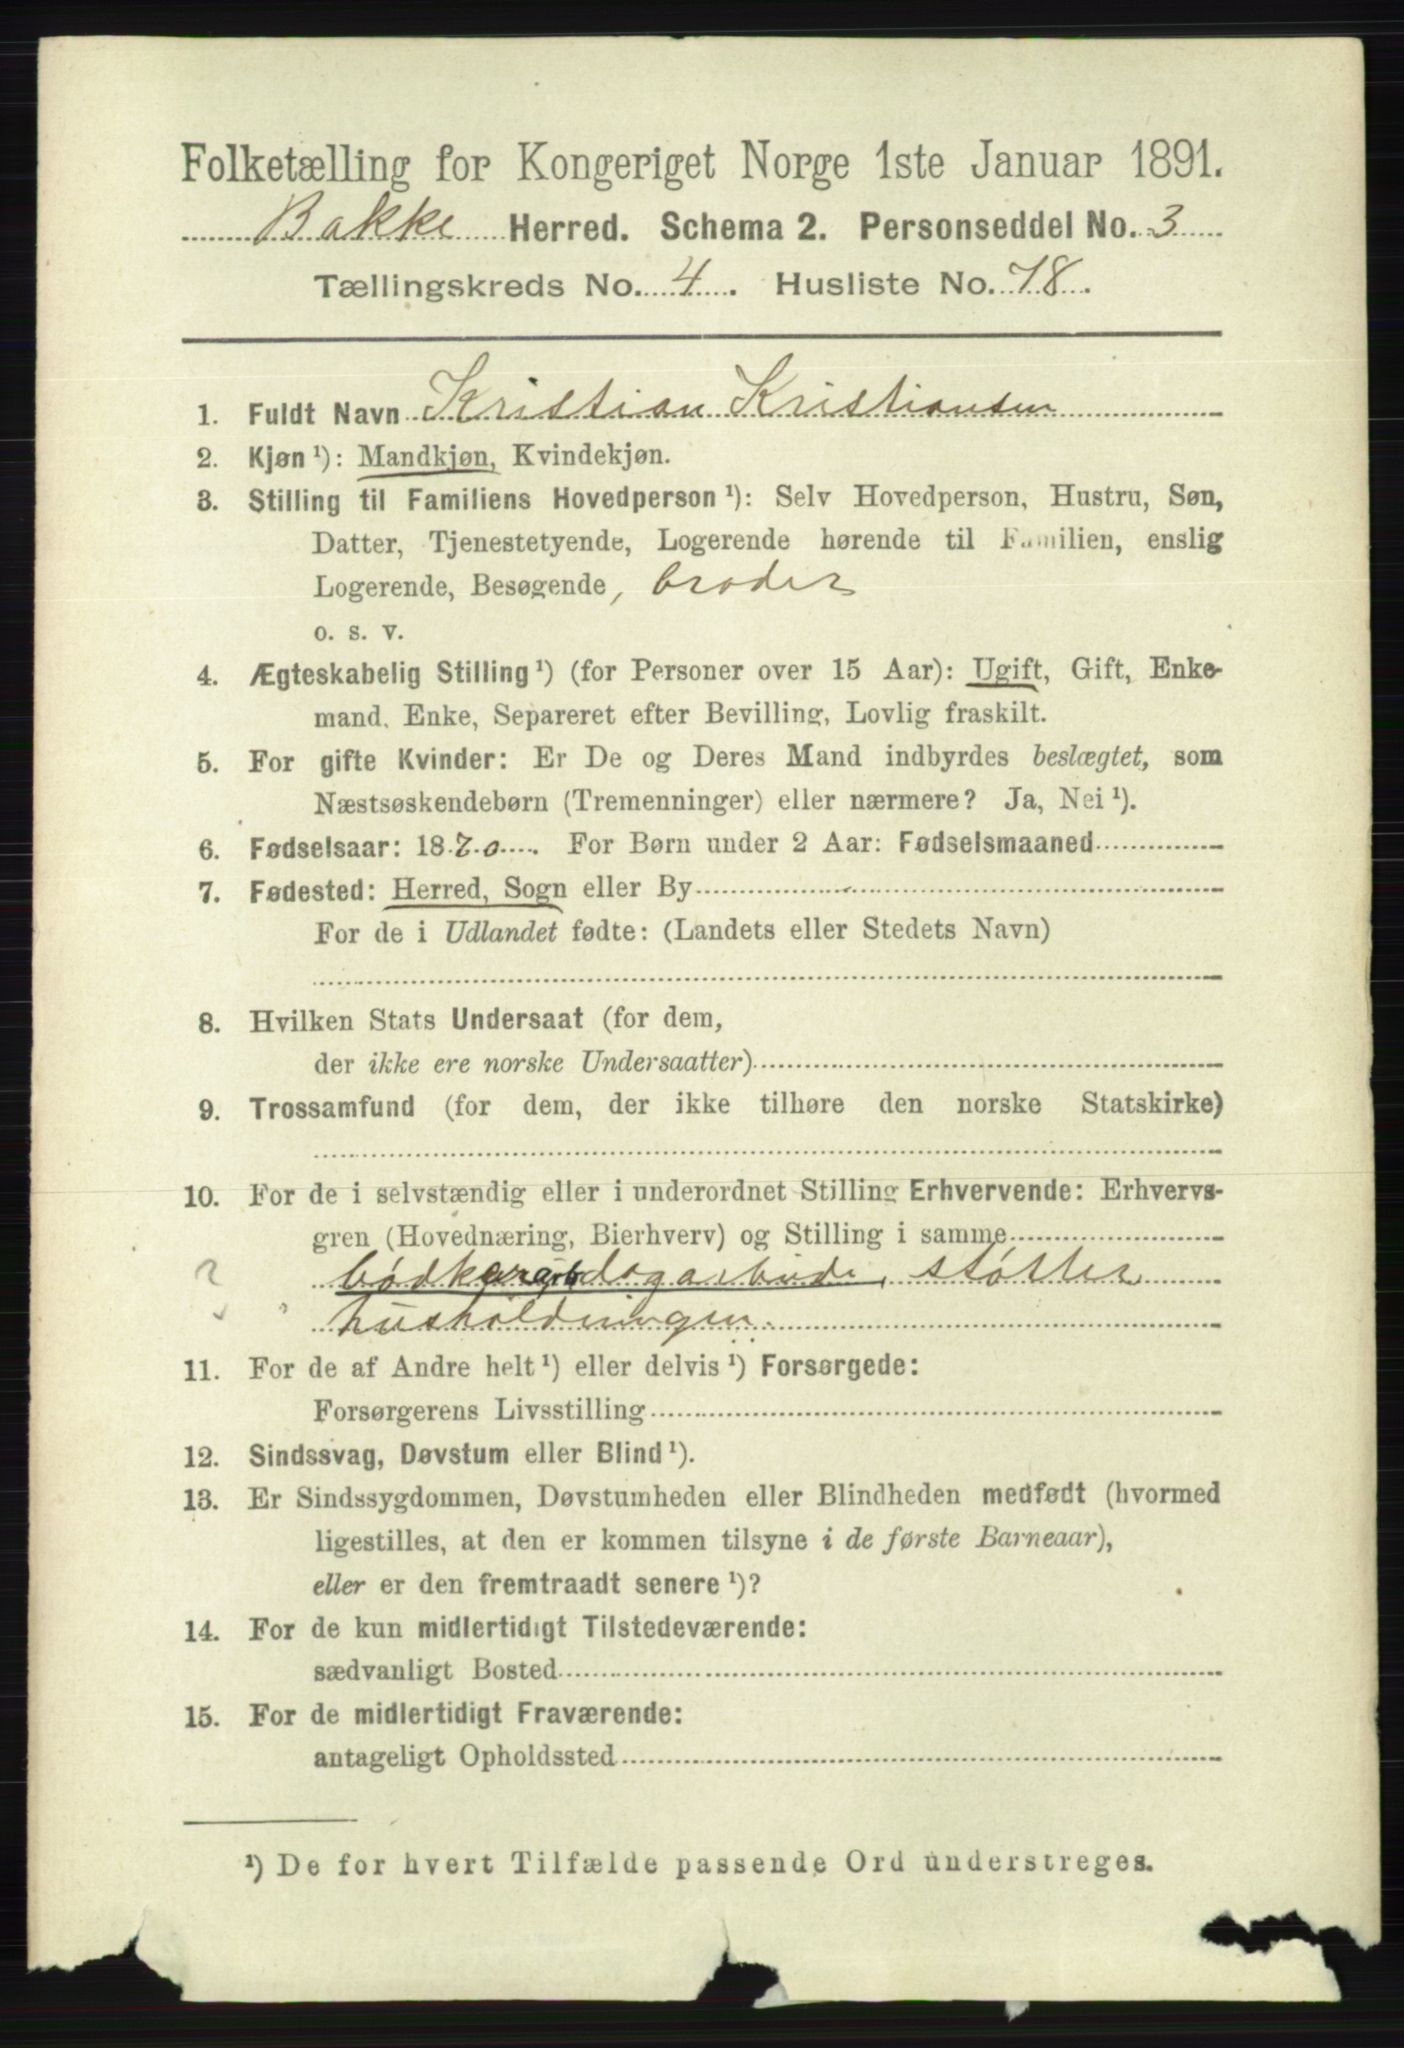 Folketælling for Kongeriget Norge 1ste Januar 1891.
Bakke Herred. Schema 2. Personseddel No. 3
Tællingskreds No. 4. Husliste No. 78.
1. Fuldt Navn Kristian Kristiansen
2. Kjøn ¹): Mandkjøn, Kvindekjøn.
3. Stilling til Familiens Hovedperson ¹): Selv Hovedperson, Hustru, Søn,
Datter, Tjenestetyende, Logerende hørende til Familien, enslig
Logerende, Besøgende, broder
o. s. v.
4. Ægteskabelig Stilling ¹) (for Personer over 15 Aar): Ugift, Gift, Enke-
mand, Enke, Separeret efter Bevilling, Lovlig fraskilt.
5. For gifte Kvinder: Er De og Deres Mand indbyrdes beslægtet, som
Næstsøskendebørn (Tremenninger) eller nærmere? Ja, Nei ¹).
6. Fødselsaar: 1870. For Børn under 2 Aar: Fødselsmaaned
7. Fødested: Herred, Sogn eller By
For de i Udlandet fødte: (Landets eller Stedets Navn)
8. Hvilken Stats Undersaat (for dem,
der ikke ere norske Undersaatter)
9. Trossamfund (for dem, der ikke tilhøre den norske Statskirke)
10. For de i selvstændig eller i underordnet Stilling Erhvervende: Erhvervs-
gren (Hovednæring, Bierhverv) og Stilling i samme
? bødker dagarbeide, støtter
husholdningen.
11. For de af Andre helt ¹) eller delvis ¹) Forsørgede:
Forsørgerens Livsstilling
12. Sindssvag, Døvstum eller Blind ¹).
13. Er Sindssygdommen, Døvstumheden eller Blindheden medfødt (hvormed
ligestilles, at den er kommen tilsyne i de første Barneaar),
eller er den fremtraadt senere ¹)?
14. For de kun midlertidigt Tilstedeværende:
sædvanligt Bosted
15. For de midlertidigt Fraværende:
antageligt Opholdssted
¹) De for hvert Tilfælde passende Ord understreges.